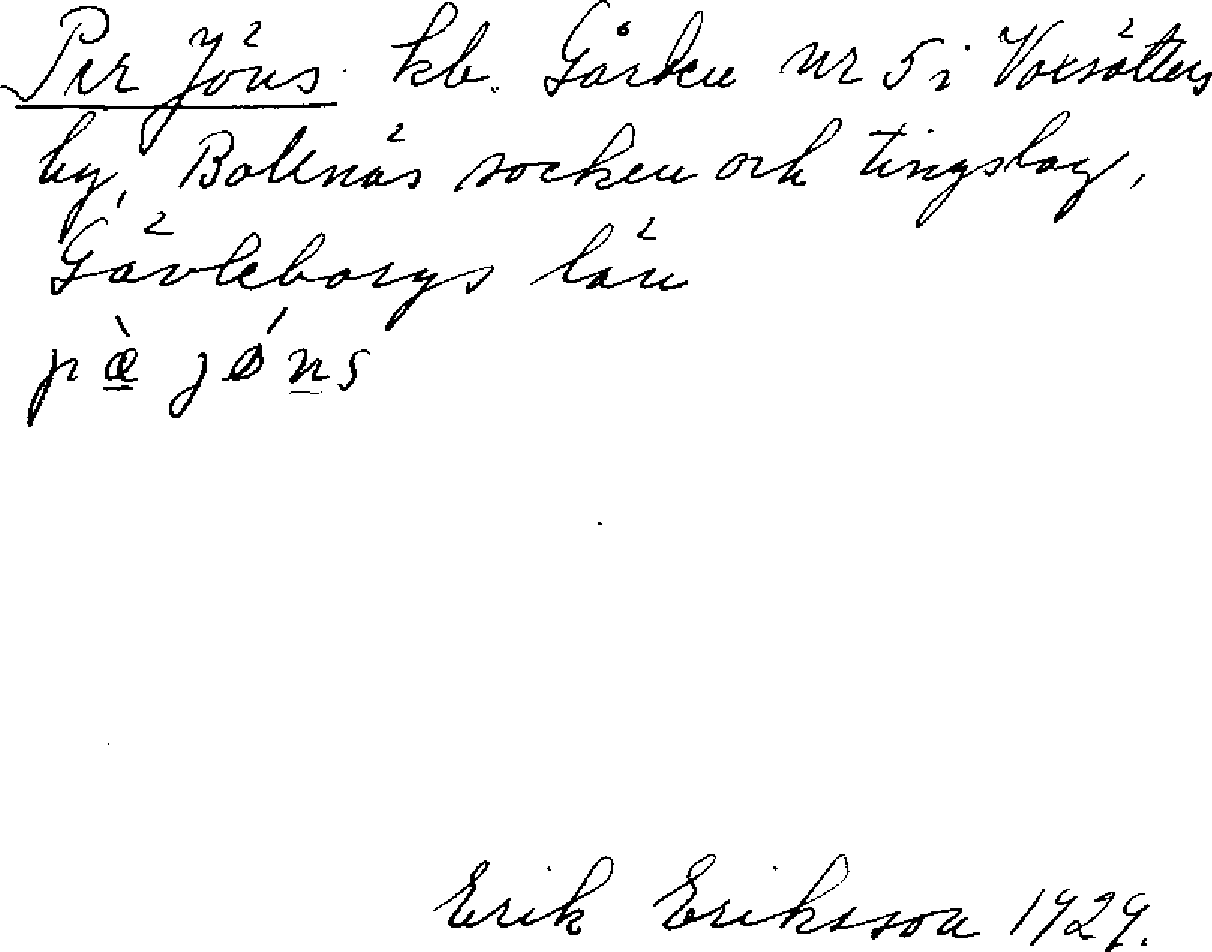 Per Jöns. kb. Gården nr 5 i Voxsätters
by, Bollnäs socken och tingslag,
Gävleborgs län
pæ̀ jǿns
Erik Eriksson 1929.